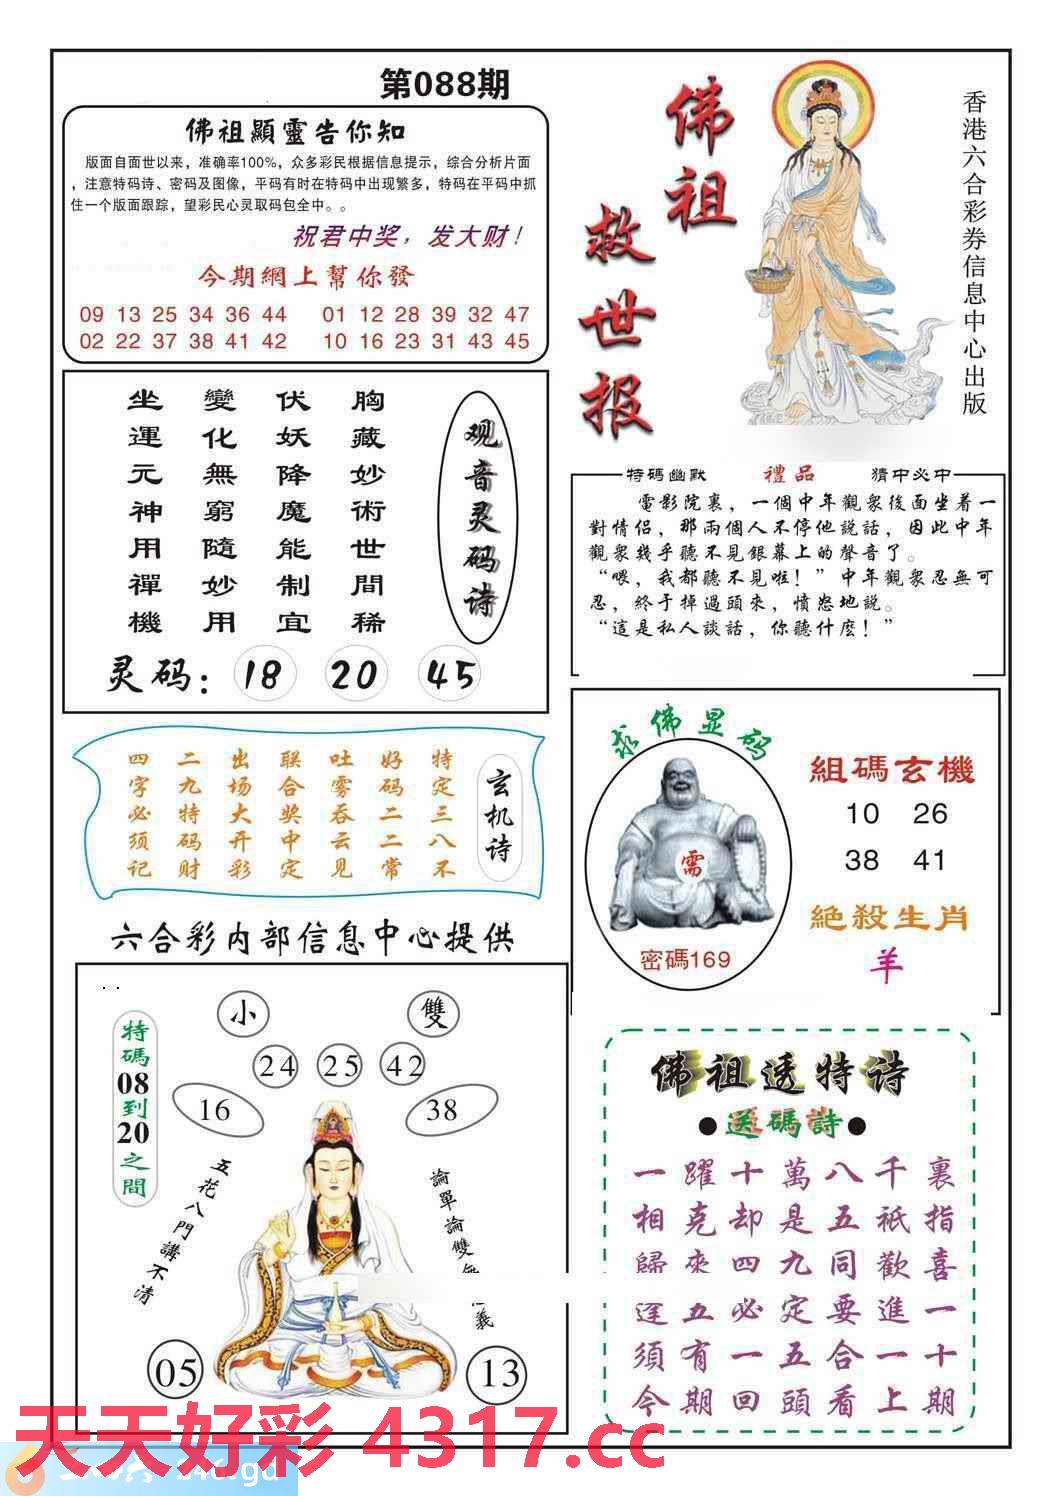 第088期
佛祖顯靈告你知
版面自面世以来，准确率100%，众多彩民根据信息提示，综合分析片面
，注意特码诗、密码及图像，平码有时在特码中出现繁多，特码在平码中抓
住一个版面跟踪，望彩民心灵取码包全中。。
祝君中奖，发大财！
今期網上幫你發
09 13 25 34 36 44 01 12 28 39 32 47
02 22 37 38 41 42 10 16 23 31 43 45
佛祖
救世报
香港六合彩券信息中心出版
观音灵码诗
胸藏妙術世間稀
伏妖降魔能制宜
變化無窮隨妙用
坐運元神用禪機
灵码：18 20 45
特碼幽默 禮品 猜中必中
電影院裏，一個中年觀衆後面坐着一
對情侶，那兩個人不停他説話，因此中年
觀衆幾乎聽不見銀幕上的聲音了。
“喂，我都聽不見啦！”中年觀衆忍無可
忍，終于掉過頭來，憤怒地説。
“這是私人談話，你聽什麽！”
玄机诗
特定三八不
好码二二常
吐雾吞云见
联合奖中定
出场大开彩
二九特码财
四字必须记
求佛显码
需
密碼169
組碼玄機
10 26
38 41
絕殺生肖
羊
六合彩内部信息中心提供
小 雙
24 25 42
16 38
特碼08到20之間
五花八門講不清
論單論雙 義
05 13
佛祖透特诗
●送碼詩●
一躍十萬八千裏
相克却是五祇指
歸來四九同歡喜
逢五必定要進一
須有一五合一十
今期回頭看上期
天天好彩 4317.cc
246.gd